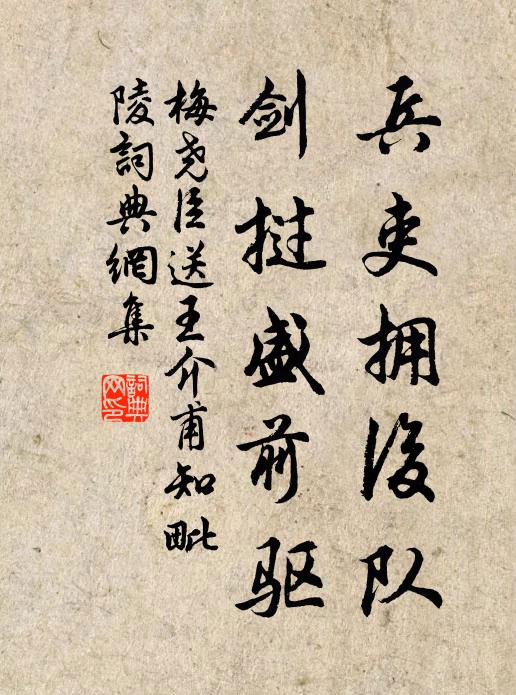 兵吏拥後队
剑挝盛前驱
梅尧臣送王介甫知毗
陵詞典網集
詞典网印